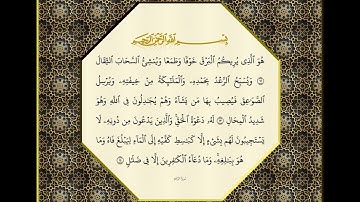 بِسْمِ ٱللَّهِ ٱلرَّحْمَٰنِ ٱلرَّحِيمِ
هُوَ ٱلَّذِى يُرِيكُمُ ٱلْبَرْقَ خَوْفًا وَطَمَعًا وَيُنشِئُ ٱلسَّحَابَ ٱلثِّقَالَ
۝١٢ وَيُسَبِّحُ ٱلرَّعْدُ بِحَمْدِهِۦ وَٱلْمَلَٰٓئِكَةُ مِنْ خِيفَتِهِۦ وَيُرْسِلُ
ٱلصَّوَٰعِقَ فَيُصِيبُ بِهَا مَن يَشَآءُ وَهُمْ يُجَٰدِلُونَ فِى ٱللَّهِ وَهُوَ
شَدِيدُ ٱلْمِحَالِ ۝١٣ لَهُۥ دَعْوَةُ ٱلْحَقِّ وَٱلَّذِينَ يَدْعُونَ مِن دُونِهِۦ لَا
يَسْتَجِيبُونَ لَهُم بِشَىْءٍ إِلَّا كَبَٰسِطِ كَفَّيْهِ إِلَى ٱلْمَآءِ لِيَبْلُغَ فَاهُ وَمَا
هُوَ بِبَٰلِغِهِۦ وَمَا دُعَآءُ ٱلْكَٰفِرِينَ إِلَّا فِى ضَلَٰلٍ ۝١٤